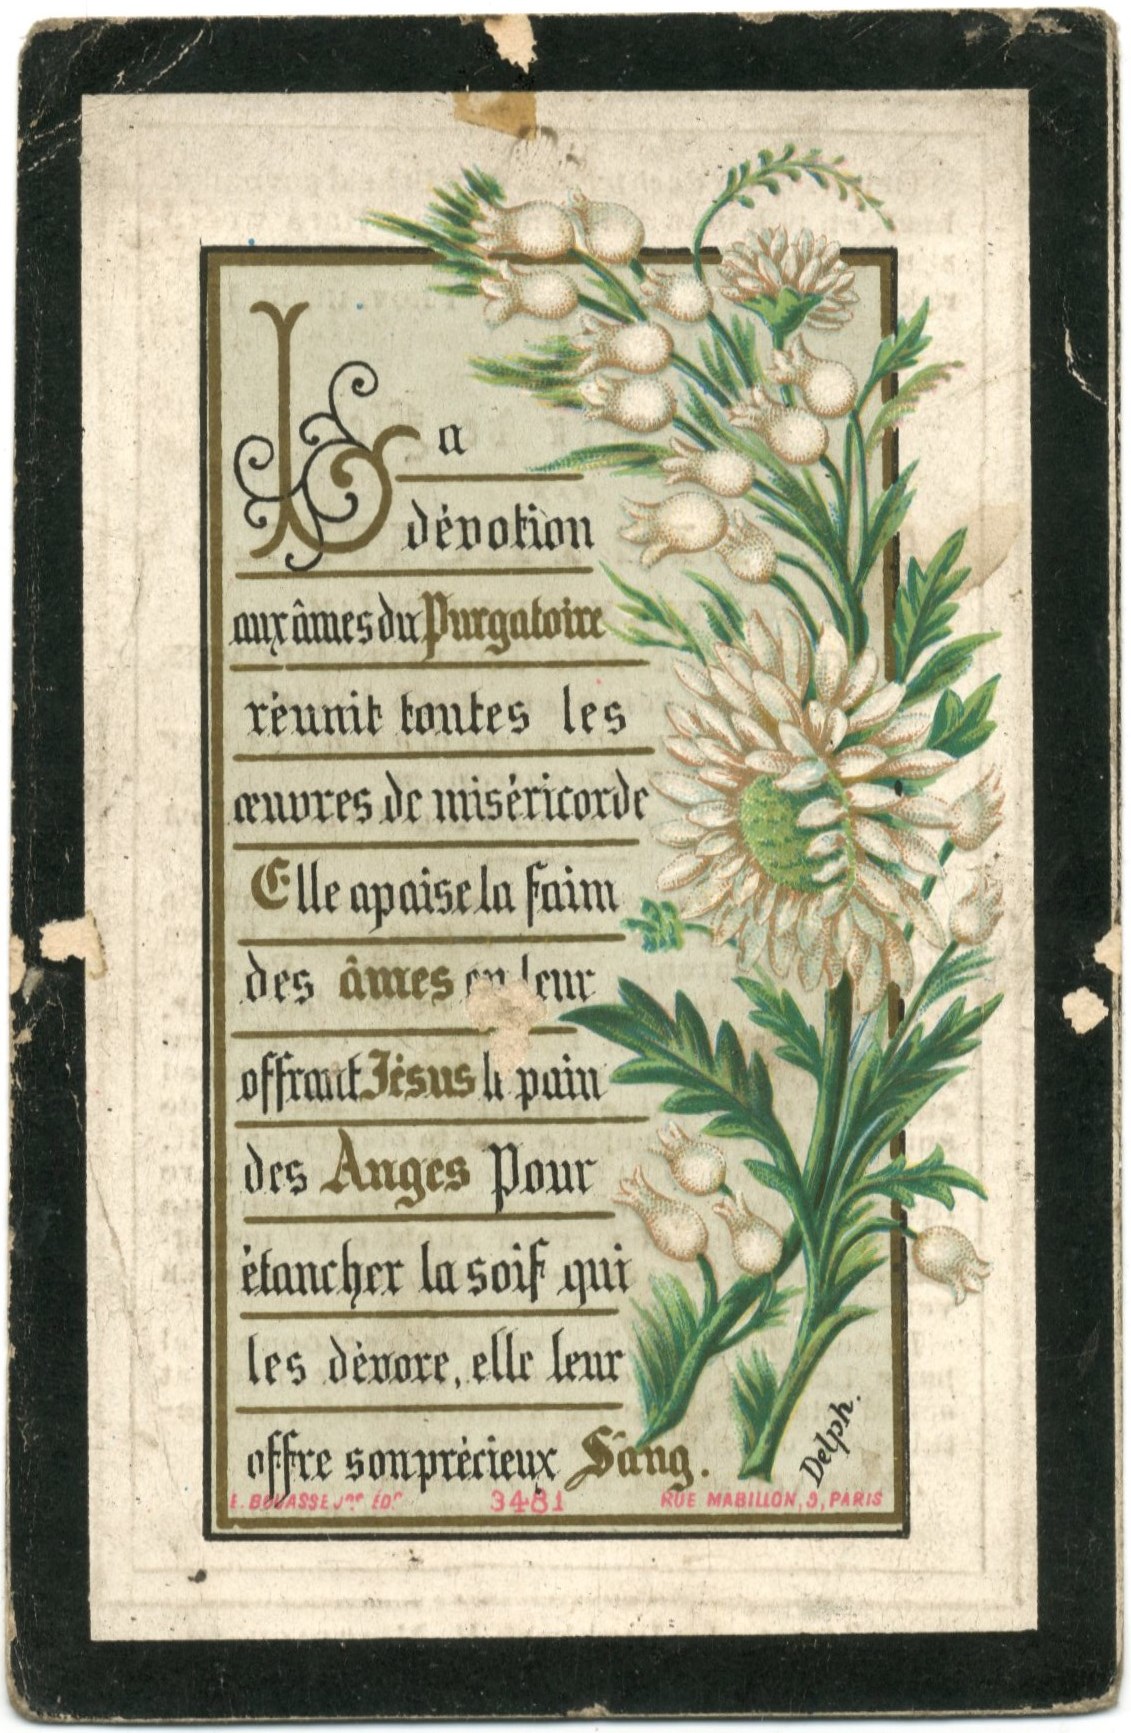 La
dévotion
aux âmes du Purgatoire
réunit toutes les
œuvres de miséricorde
Elle apaise la faim
des âmes en leur
offrant Jésus le pain
des Anges Pour
étancher la soif qui
les dévore, elle leur
offre son précieux Sang.
Delph.
E. BOUASSE Jne ÉDr 3481 RUE MABILLON, 9, PARIS